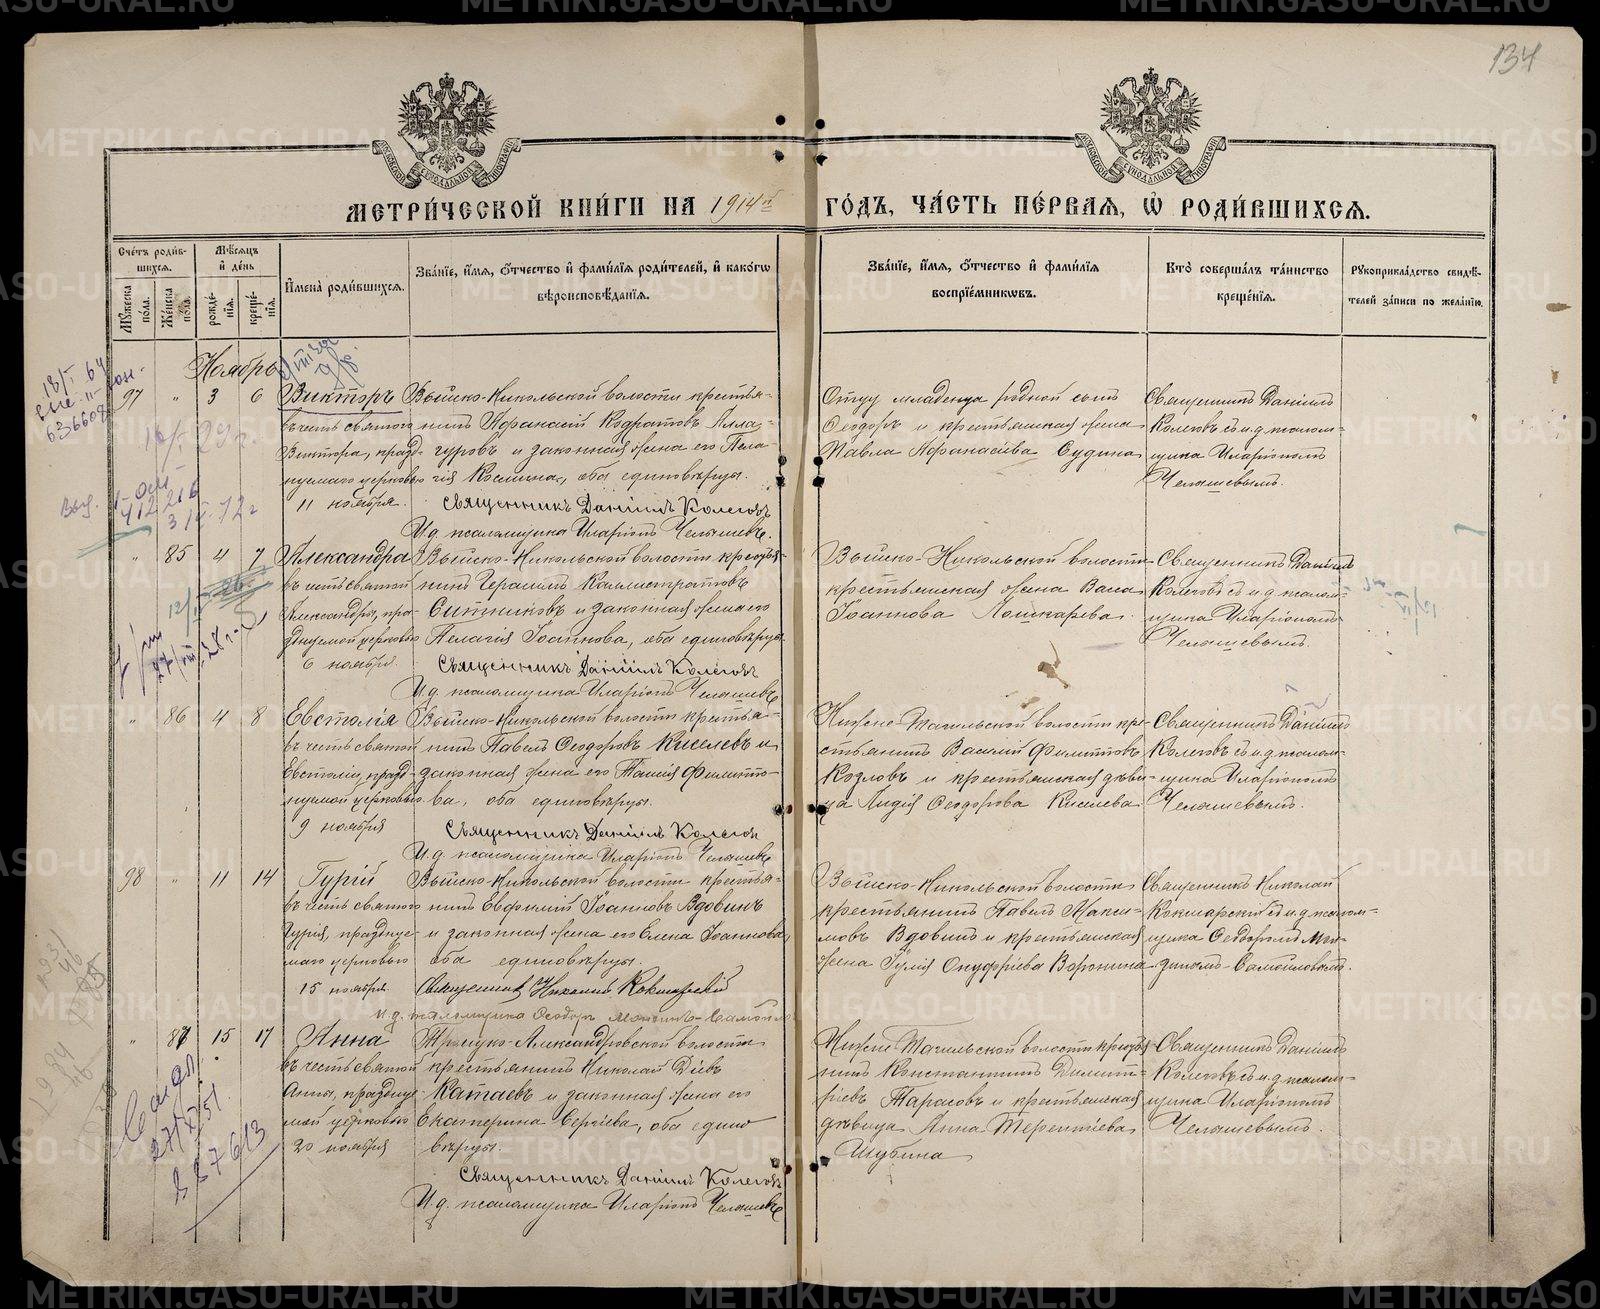 134
МЕТРИ́ЧЕСКОЙ КНИ́ГИ НА 1914й ГО́ДЪ, ЧА́СТЬ ПЕ́РВАЯ, Ѡ҆ РОДИ́ВШИХСЯ.
Сче́тъ роди́в-
шихся.
Мѣ́сяцъ
и҆ де́нь
Мꙋ́жеска
по́ла.
Же́нска
по́ла.
рожде́-
нїя.
креще́-
нїя.
И҆мена̀ роди́вшихся.
Зва́нїе, и҆́мя, ѻ҆́тчество и҆ фами́лїя роди́телей, и҆ како́гѡ
вѣроисповѣ́данїя.
Зва́нїе, и҆́мя, ѻ҆́тчество и҆ фами́лїя
воспрїе́мникѡвъ.
Кто̀ соверша́лъ та́инство
креще́нїя.
Рꙋкоприкла́дство свидѣ́-
телей за́писи по жела́нїю.
Ноябрь
97 " 3 6
Викторъ
въ честь святого
Виктора, празд-
нуемаго церковью
11 ноября
Выйско-Никольской волости крестья-
нинъ Афанасій Кодратовъ Алла-
гуровъ и законная жена его Пела-
гія Космина, оба единовѣрцы.
Священникъ Даніилъ Колеговъ
И.д. псаломщика Иларіонъ Челышевъ.
Отцу младенца родной сынъ
Ѳеодоръ и крестьянская жена
Павла Афанасіева Судина
Священникъ Даніилъ
Колеговъ съ и.д. псалом-
щика Иларіономъ
Челышевымъ.
" 85 4 7
Александра
въ честь святой
Александры, пра-
зднуемой церковью
6 ноября
Выйско-Никольской волости крестья-
нинъ Герасимъ Каллистратовъ
Ситниковъ и законная жена его
Пелагія Іоаннова, оба единовѣрцы.
Священникъ Даніилъ Колеговъ
И.д. псаломщика Иларіонъ Челышевъ
Выйско-Никольской волости
крестьянская жена Васса
Іоаннова Лошкарева.
Священникъ Даніилъ
Колеговъ съ и.д. псалом-
щика Иларіономъ
Челышевымъ.
" 86 4 8
Евстолія
въ честь святой
Евстоліи, празд-
нуемой церковью
9 ноября
Выйско-Никольской волости крестья-
нинъ Павелъ Ѳеодоровъ Киселевъ и
законная жена его Таисія Филиппо-
ва, оба единовѣрцы.
Священникъ Даніилъ Колеговъ
И.д. псаломщика Иларіонъ Челышевъ
Нижне-Тагильской волости кре-
стьянинъ Василій Филипповъ
Козловъ и крестьянская дѣви-
ца Лидія Ѳеодорова Киселева
Священникъ Даніилъ
Колеговъ съ и.д. псалом-
щика Иларіономъ
Челышевымъ.
98 " 11 14
Гурій
въ честь святого
Гурія, празднуе-
маго церковью
15 ноября
Выйско-Никольской волости крестья-
нинъ Евфимій Іоанновъ Вдовинъ
и законная жена его Елена Іоаннова,
оба единовѣрцы.
Священникъ Николай Кокшарскій
и.д. псаломщика Ѳеодоръ
Выйско-Никольской волости
крестьянинъ Павелъ Макси-
мовъ Вдовинъ и крестьянская
жена Гулія Онуфріева Воронина
Священникъ Николай
Кокшарскій съ и.д. псалом-
щика Ѳеодоромъ
" 87 15 17
Анна
въ честь святой
Анны, празднуе-
мой церковью
20 ноября
Троицко-Александровской волости
крестьянинъ Николай Діевъ
Катаевъ и законная жена его
Екатерина Сергіева, оба едино
вѣрцы.
Священникъ Даніилъ Колеговъ
И.д. псаломщика Иларіонъ Челышевъ
Нижне-Тагильской волости крестья-
нинъ Константинъ Димит-
ріевъ Тарасовъ и крестьянская
дѣвица Анна Терентіева
Шубина
Священникъ Даніилъ
Колеговъ съ и.д. псалом-
щика Иларіономъ
Челышевымъ.
METRIKI.GASO-URAL.RU